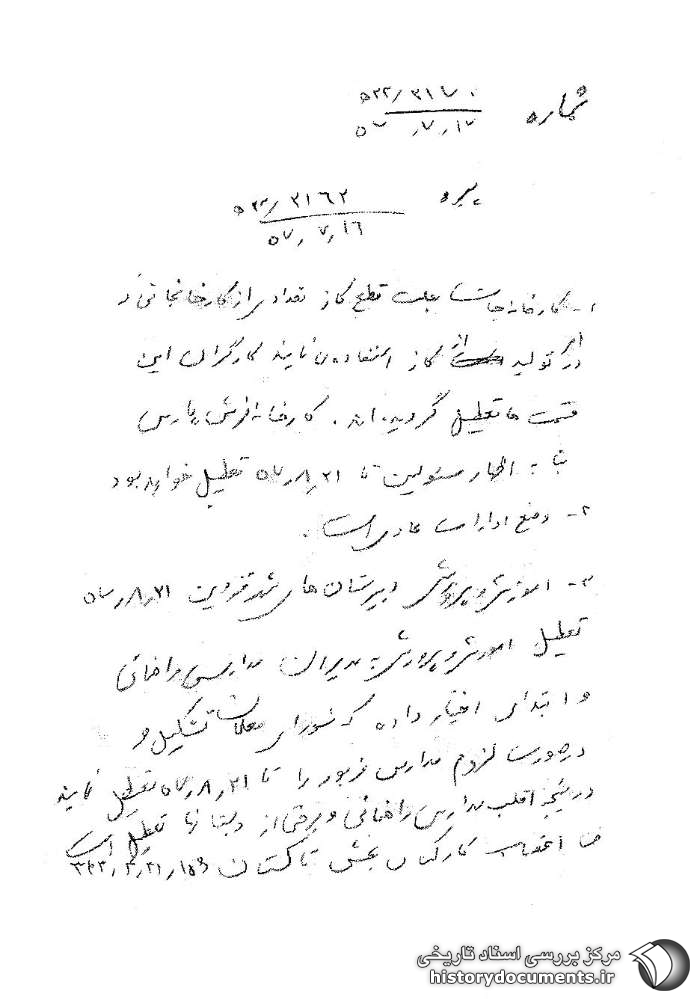 شماره ۵۲۲/۳۱۷۰
۵۷/۷/۱۷
پیرو ۵۲۲/۳۱۶۲
۵۷/۷/۱۶
۱- کارخانه‌جات بعلت قطع گاز تعدادی از کارخانجاتی که در
امر تولید از گاز استفاده می‌نمایند کارگران این
قسمت‌ها تعطیل گردیده‌اند. کارخانه فرش پارس
بنا به اظهار مسئولین تا ۵۷/۸/۲۱ تعطیل خواهد بود
۲- وضع ادارات عادی است.
۳- آموزش و پرورش دبیرستان های شهر قزوین ۵۷/۸/۲۱
تعطیل آموزش و پرورش به مدیران مدارس راهنمائی
و ابتدائی اختیار داده که شورای معلمان تشکیل و
در صورت لزوم مدارس مزبور را تا ۵۷/۸/۲۱ تعطیل نمایند
در نتیجه اغلب مدارس راهنمائی و برخی از دبستانها تعطیل است
اعتصاب کارکنان بخش تاکستان
مرکز بررسی اسناد تاریخی
historydocuments.ir